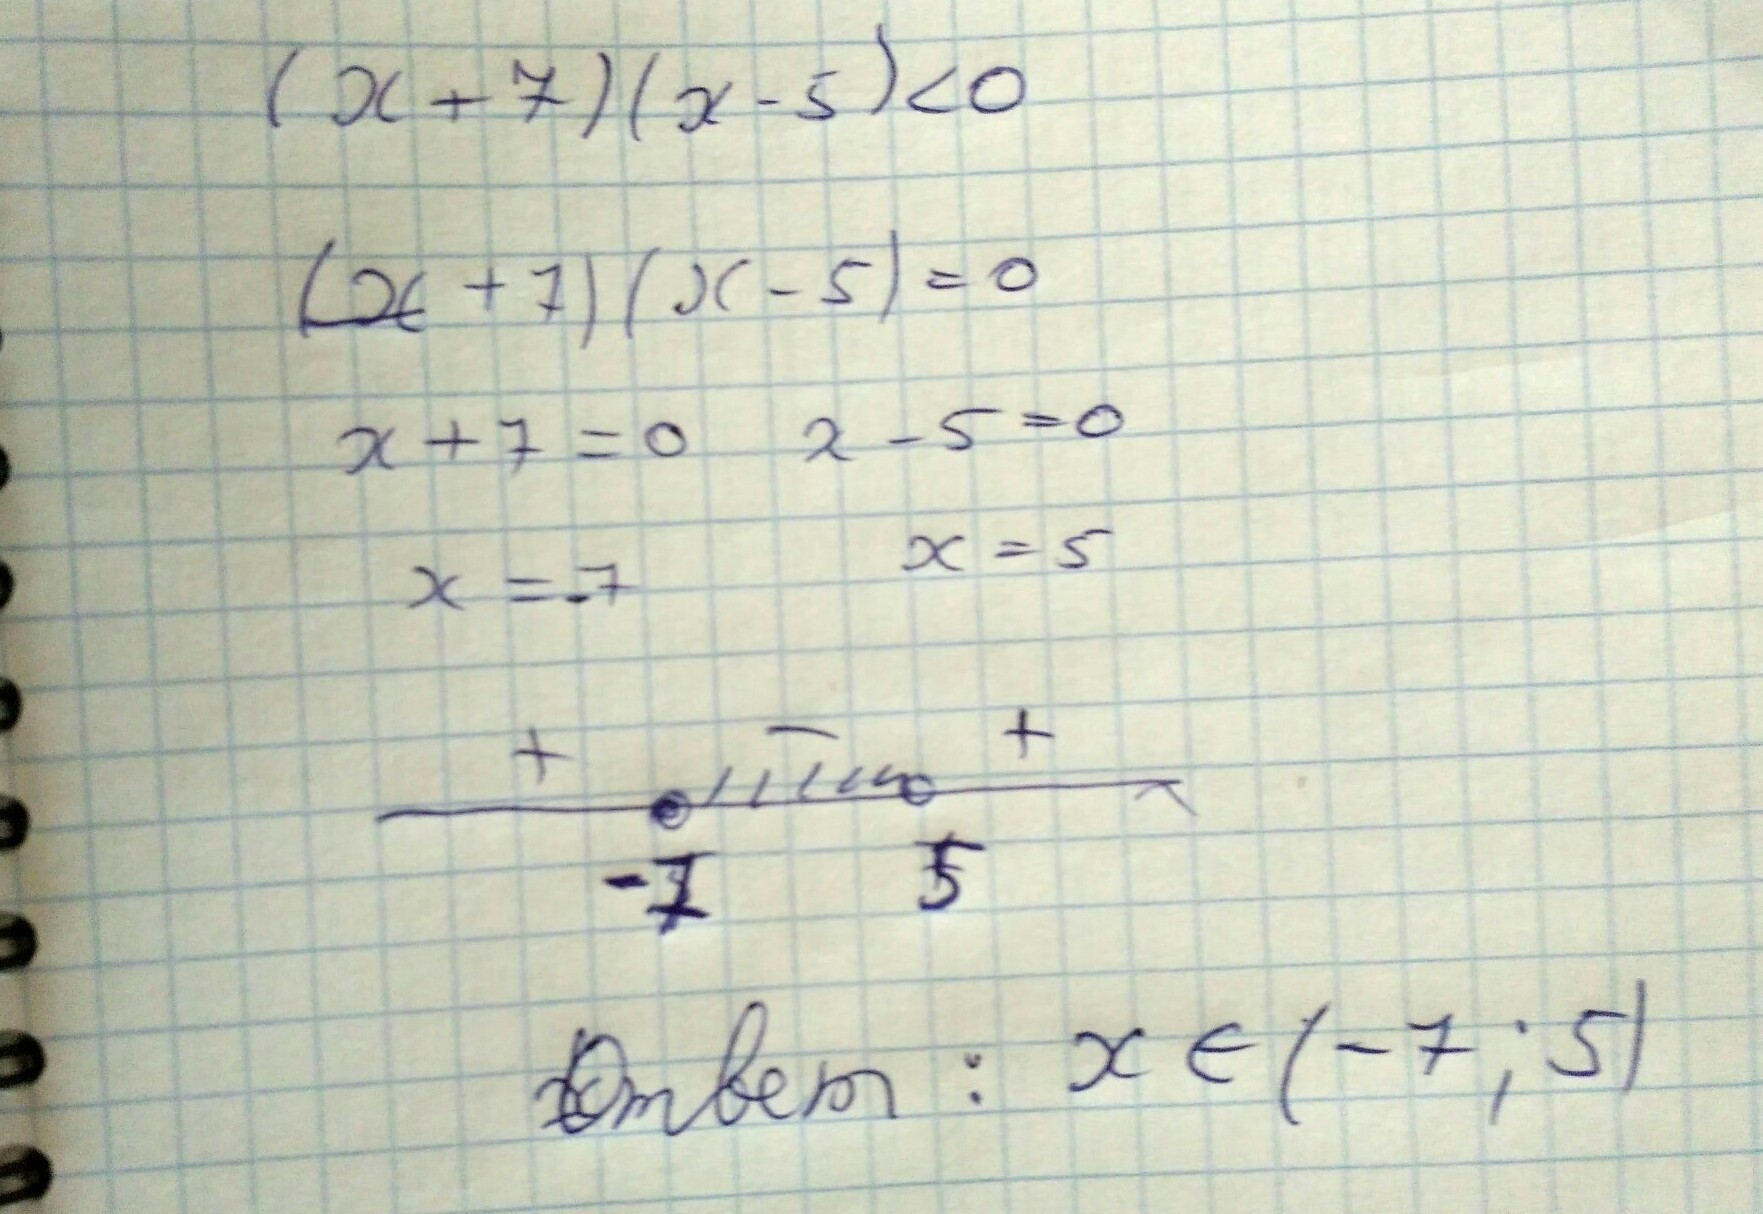 (x+7)(x-5)<0
(x+7)(x-5)=0
x+7=0 x-5=0
x=-7 x=5
+ - +
-7 5
Ответ: x∈(-7;5)